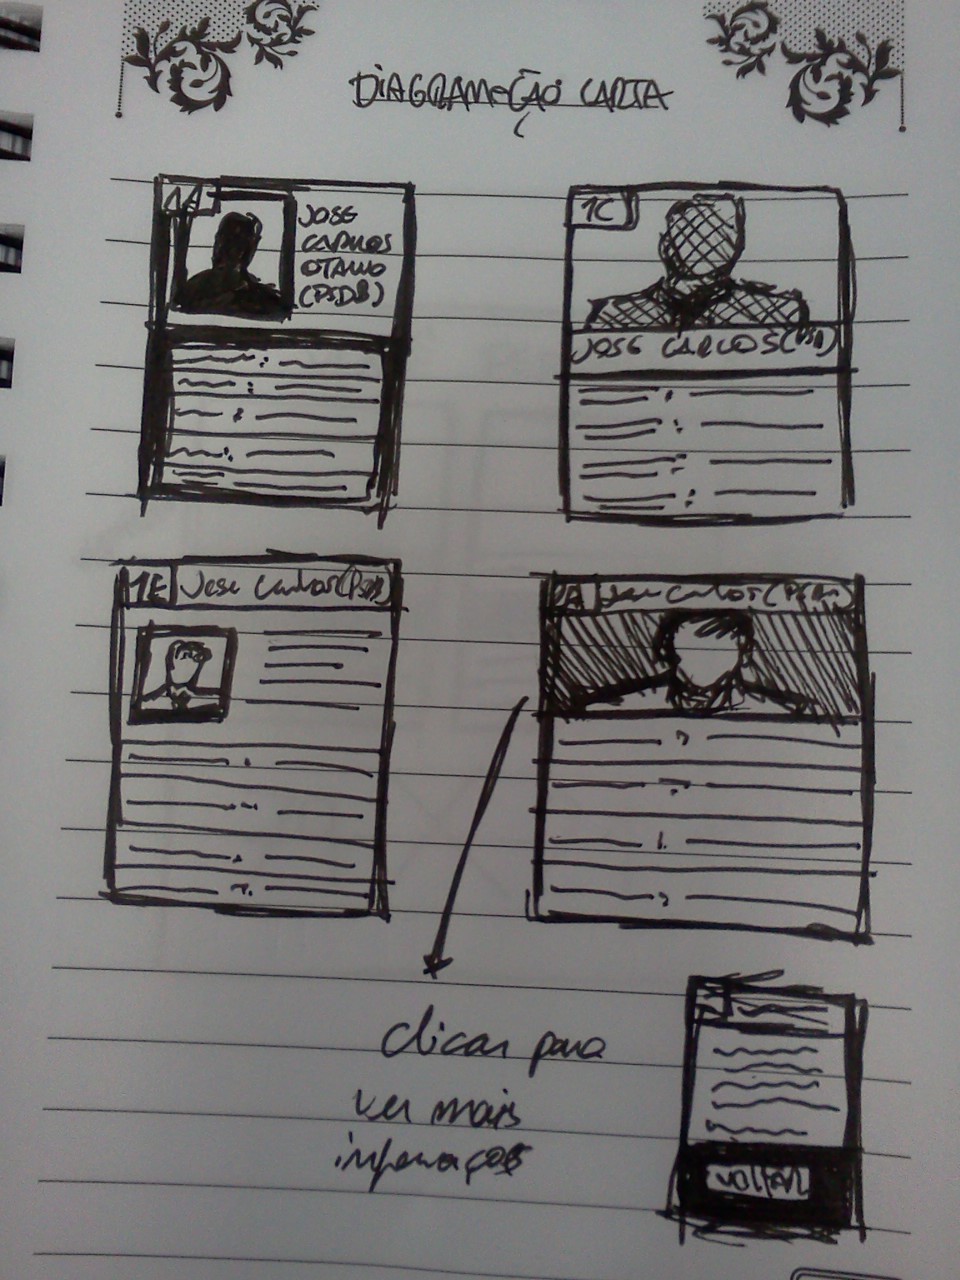 DIAGRAMAÇÃO CARTA
1A
JOSE
CARLOS
OTAVIO
(PSDB)
1C
JOSE CARLOS (PSDB)
1E Jose Carlos (PSDB)
Jose Carlos (PSDB)
clicar para
ver mais
informações
VOLTAR